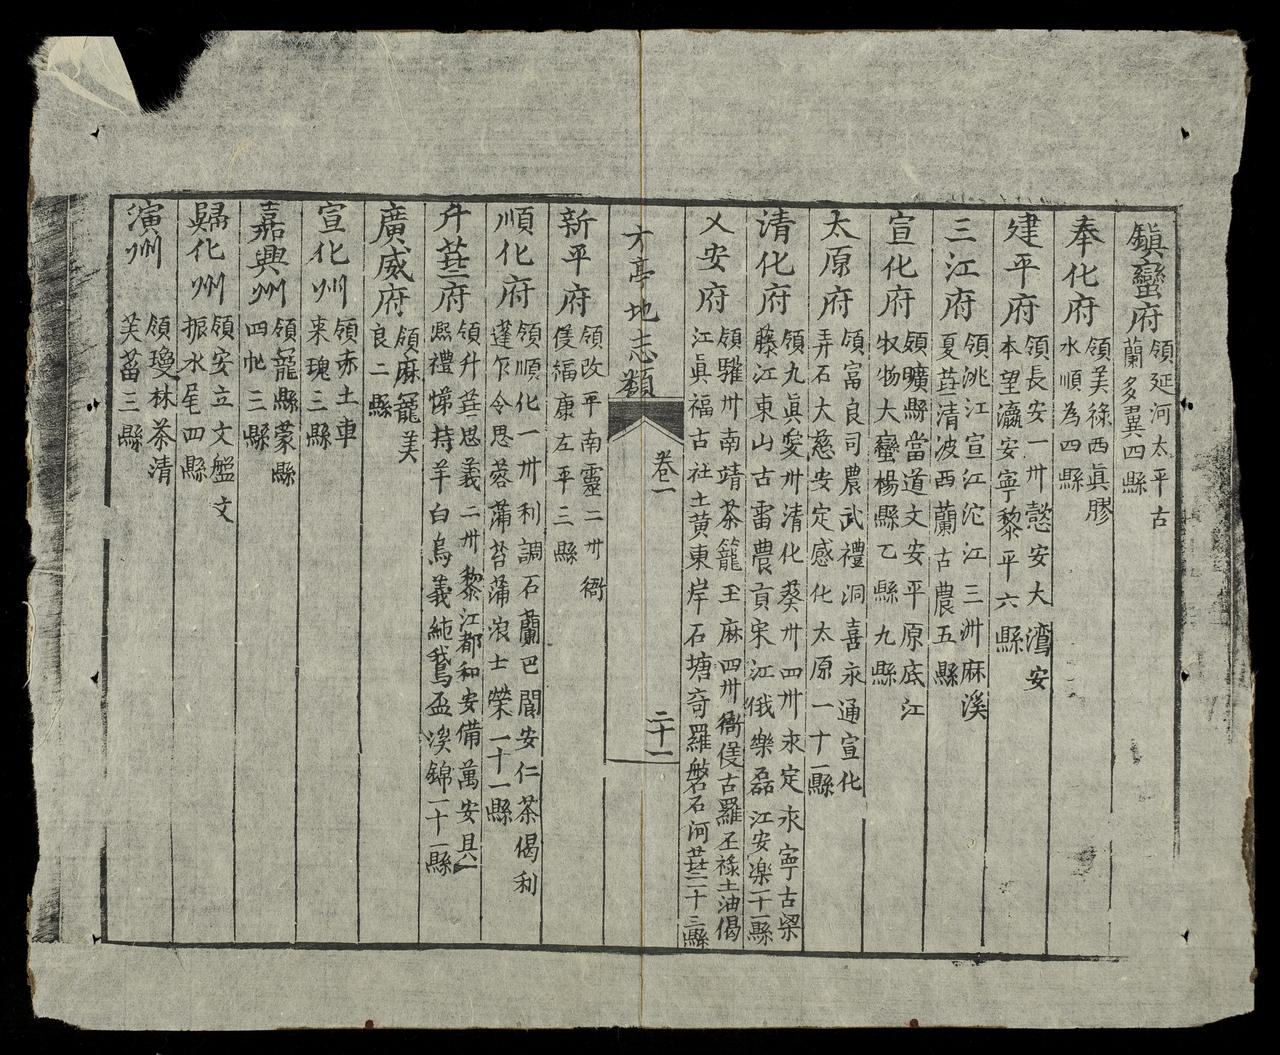 鎮蠻府
領延河太平古
蘭多翼四縣
奉化府
領美祿西眞膠
水順為四縣
建平府
領長安一卅懿安大灣安
本望瀛安寧黎平六縣
三江府
領洮江宣江沱江三洲麻溪
夏荘清波西蘭古農五縣
宣化府
領曠縣當道文安平原底江
收物大蠻楊縣乙縣九縣
太原府
領富良司農武禮洞喜永通宣化
弄石大慈安定感化太原一十一縣
清化府
領九眞愛卅清化葵卅四卅永定永寧古梁
藤江東山古雷農貢宋江俄樂磊江安楽一十一縣
乂安府
領驩卅南靖茶籠玉麻四卅衙儀古羅丕祿土油偈
江眞福古社土黄東岸石塘奇羅磐石河荘一十三縣
方亭地志類
卷一
二十一
新平府
領改平南靈二卅衙
儀福康左平三縣
順化府
領順化一卅利調石蘭巴閬安仁茶偈利
蓬乍令思蓉蒲苔蒲浪士榮一十一縣
升荘府
領升荘思義二卅黎江都和安備萬安具
熙禮悌持羊白烏義純鵝盃溪錦一十一縣
廣威府
領麻籠美
良二縣
宣化州
領赤土車
來瑰三縣
嘉興州
領籠縣蒙縣
四忙三縣
歸化州
領安立文盤文
振水尾四縣
演州
領瓊林茶清
芙蒥三縣